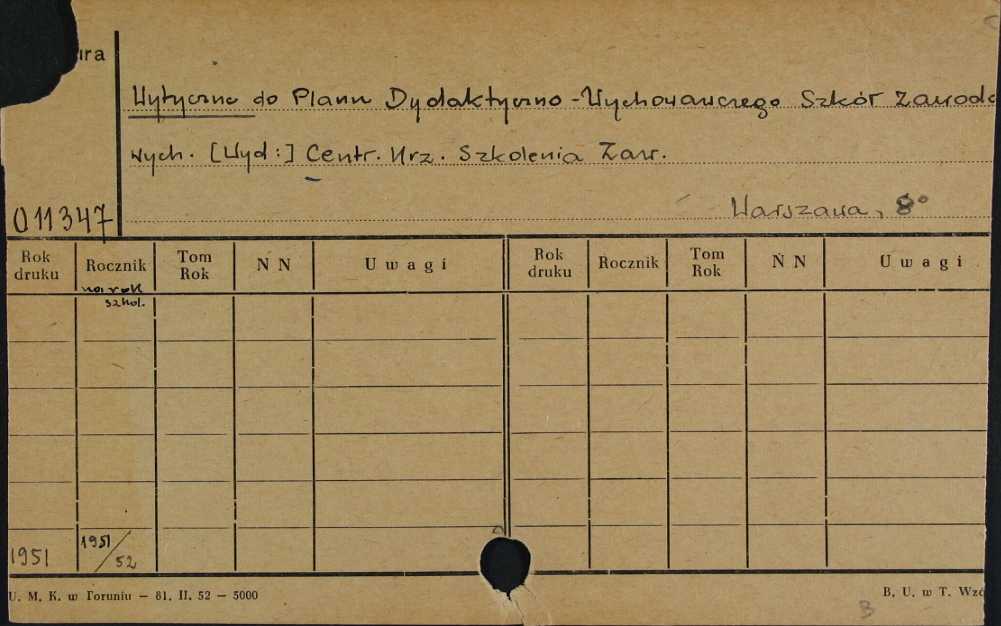 ura
Wytyczne do Planu Dydaktyczno-Wychowawczego Szkół Zawodo
wych. [Wyd:] Centr. Urz. Szkolenia Zaw.
011347 Warszawa, 8°
Rok druku Rocznik Tom Rok N N Uwagi Rok druku Rocznik Tom Rok N N Uwagi
na rok
szkol.
1951 1951/52
U. M. K. w Toruniu — 81. II. 52 — 5000 B. U. w T. Wzó
B